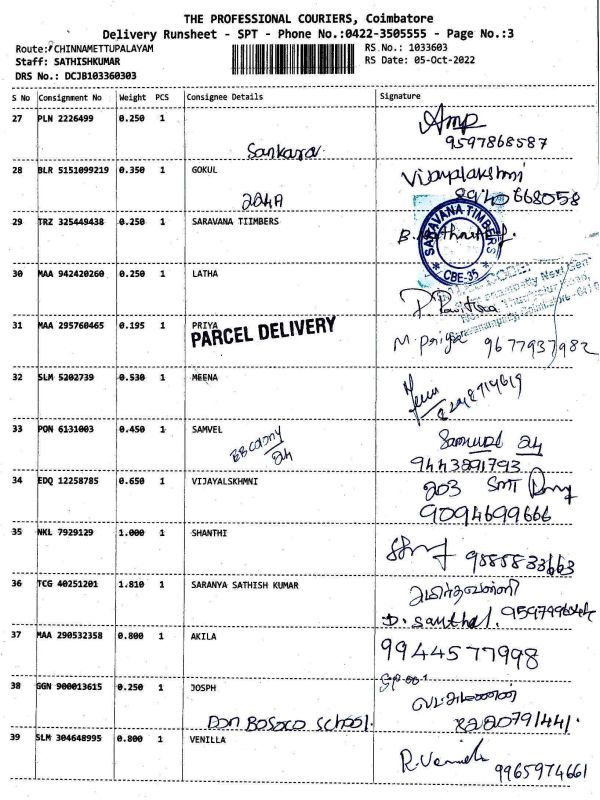 THE PROFESSIONAL COURIERS, Coimbatore
Delivery Runsheet - SPT - Phone No.:0422-3505555 - Page No.:3
Route: CHINNAMETTUPALAYAM RS No.: 1033603
Staff: SATHISHKUMAR RS Date: 05-Oct-2022
DRS No.: DCJB103360303
S No Consignment No Weight PCS Consignee Details Signature
27 PLN 2226499 0.250 1
Sankara 9597868587
28 BLR 5151099219 0.350 1 GOKUL Vijayalakshmi
204A 668058
29 TRZ 325449438 0.250 1 SARAVANA TIIMBERS
SARAVANA TIMBERS
* CBE-35 *
30 MAA 942420260 0.250 1 LATHA
31 MAA 295760465 0.195 1 PRIYA M. Priya 9677937982
PARCEL DELIVERY
32 SLM 5202739 0.530 1 MEENA
33 PON 6131003 0.450 1 SAMVEL Samuval 24
BB colony 24 9443891793
34 EDQ 12258785 0.650 1 VIJAYALSKHMNI 203 SMT
9094699666
35 NKL 7929129 1.000 1 SHANTHI
9885833663
36 TCG 40251201 1.810 1 SARANYA SATHISH KUMAR
D. Santhal.
37 MAA 290532358 0.800 1 AKILA 9944577998
38 GGN 900013615 0.250 1 JOSPH
Don Bosoco School.
39 SLM 304648995 0.800 1 VENILLA R. 
9965974661